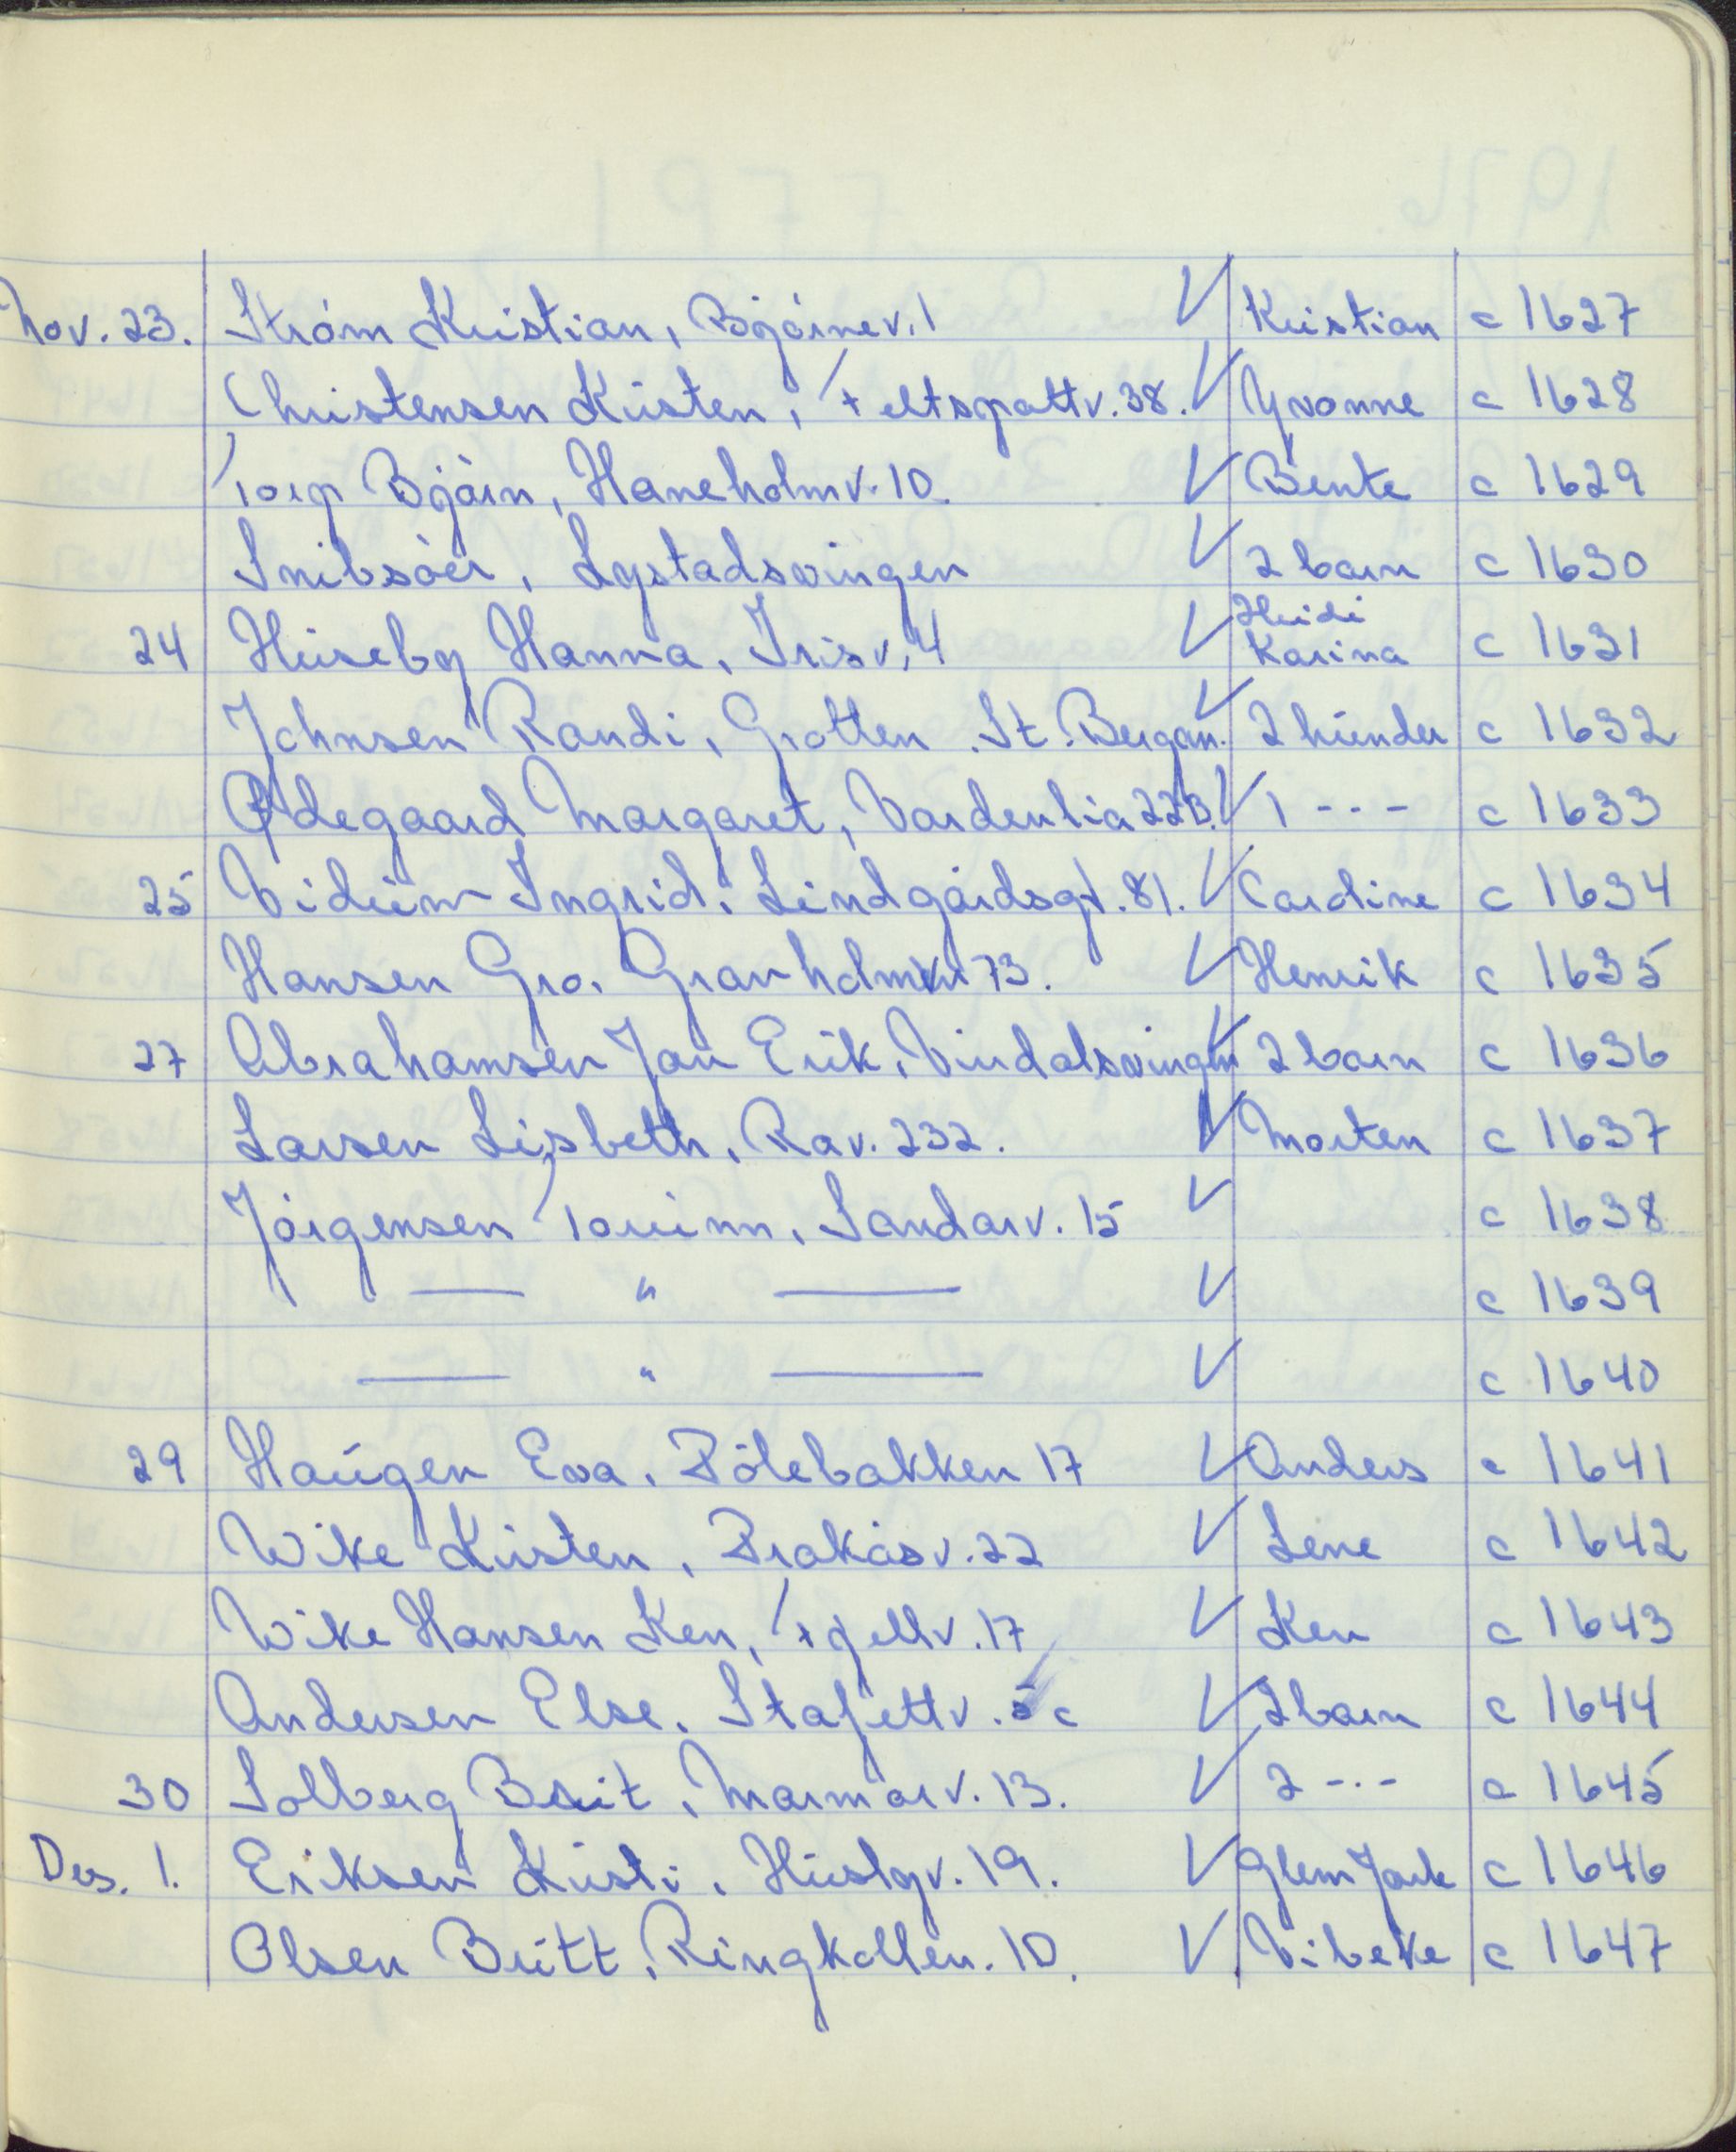 Nov. 23. Ström Kristian, Bjørnev. 1 √ Kristian c 1627
Christensen Kirsten, Feltspattv. 38. √ Yvonne c 1628
Torp Bjørn, Haneholmv. 10. √ Bente c 1629
Snibsøer, Lystadsvingen √ 2 barn c 1630
24 Huseby Hanna, Irisv. 4 √ Heidi Karina c 1631
Johnsen Randi, Grotten. St. Bergan. √ 2 hunder c 1632
Ødegaard Margaret, Vardenlia 22B. √ 1 - - - c 1633
25 Vidum Ingrid, Lindgårdsgt. 81. √ Caroline c 1634
Hansen Gro, Granholmv. 73. √ Henrik c 1635
27 Abrahamsen Jan Erik, Vindalsvingen √ 2 barn c 1636
Larsen Lisbeth, Rav. 232. √ Morten c 1637
Jørgensen Torunn, Sandarv. 15 √ c 1638
— " — √ c 1639
— " — √ c 1640
29 Haugen Eva, Pølebakken 17 √ Anders c 1641
Wike Kirsten, Brekåsv. 22 √ Lene c 1642
Wike Hansen Ken, Fjellv. 17 √ Ken c 1643
Andersen Else. Stafettv. 5 c √ 2 barn c 1644
30 Solberg Brit, Marmorv. 13. √ 2 - - - c 1645
Des. 1. Eriksen Kirsti, Husbyv. 19. √ Glenn Jack c 1646
Olsen Britt, Ringkollen. 10. √ Vibeke c 1647